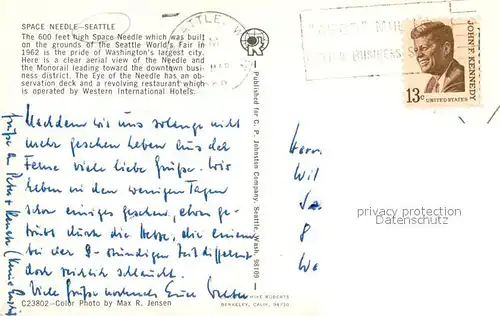 SPACE NEEDLE—SEATTLE
The 600 feet high Space Needle which was built
on the grounds of the Seattle World's Fair in
1962 is the pride of Washington's largest city.
Here is a clear aerial view of the Needle and
the Monorail leading toward the downtown busi-
ness district. The Eye of the Needle has an ob-
servation deck and a revolving restaurant which
is operated by Western International Hotels.
SEATTLE, W
MAR
JOHN F. KENNEDY
13c UNITED STATES
Published for C. P. Johnston Company, Seattle, Wash. 98109
Nachdem wir uns solange nicht
mehr gesehen haben aus der
Ferne viele liebe Grüße. Wir
haben in den wenigen Tagen
schon einiges gesehen, etwas ge-
trübt durch die Hetze, die einem
bei der 9-stündigen Zeitdifferenz
doch reichlich schlaucht.
Viele Grüße nochmals Eure
Grüße an Peter +
Herrn
Wil
8
privacy protection
Datenschutz
C23802—Color Photo by Max R. Jensen
MIKE ROBERTS
BERKELEY, CALIF. 94710